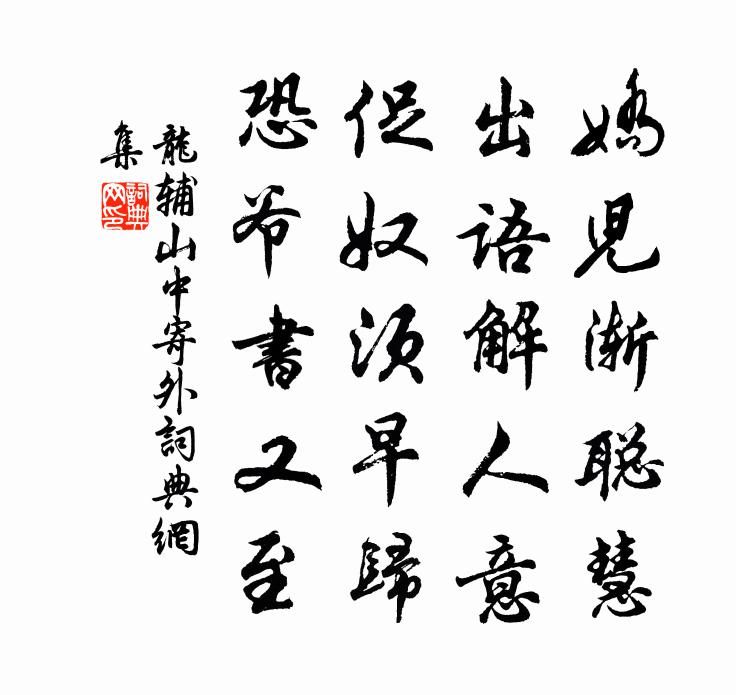 嬌児漸聡慧
出語解人意
促奴須早歸
恐爷書又至
龍辅山中寄外詞典網
集
詞典网印